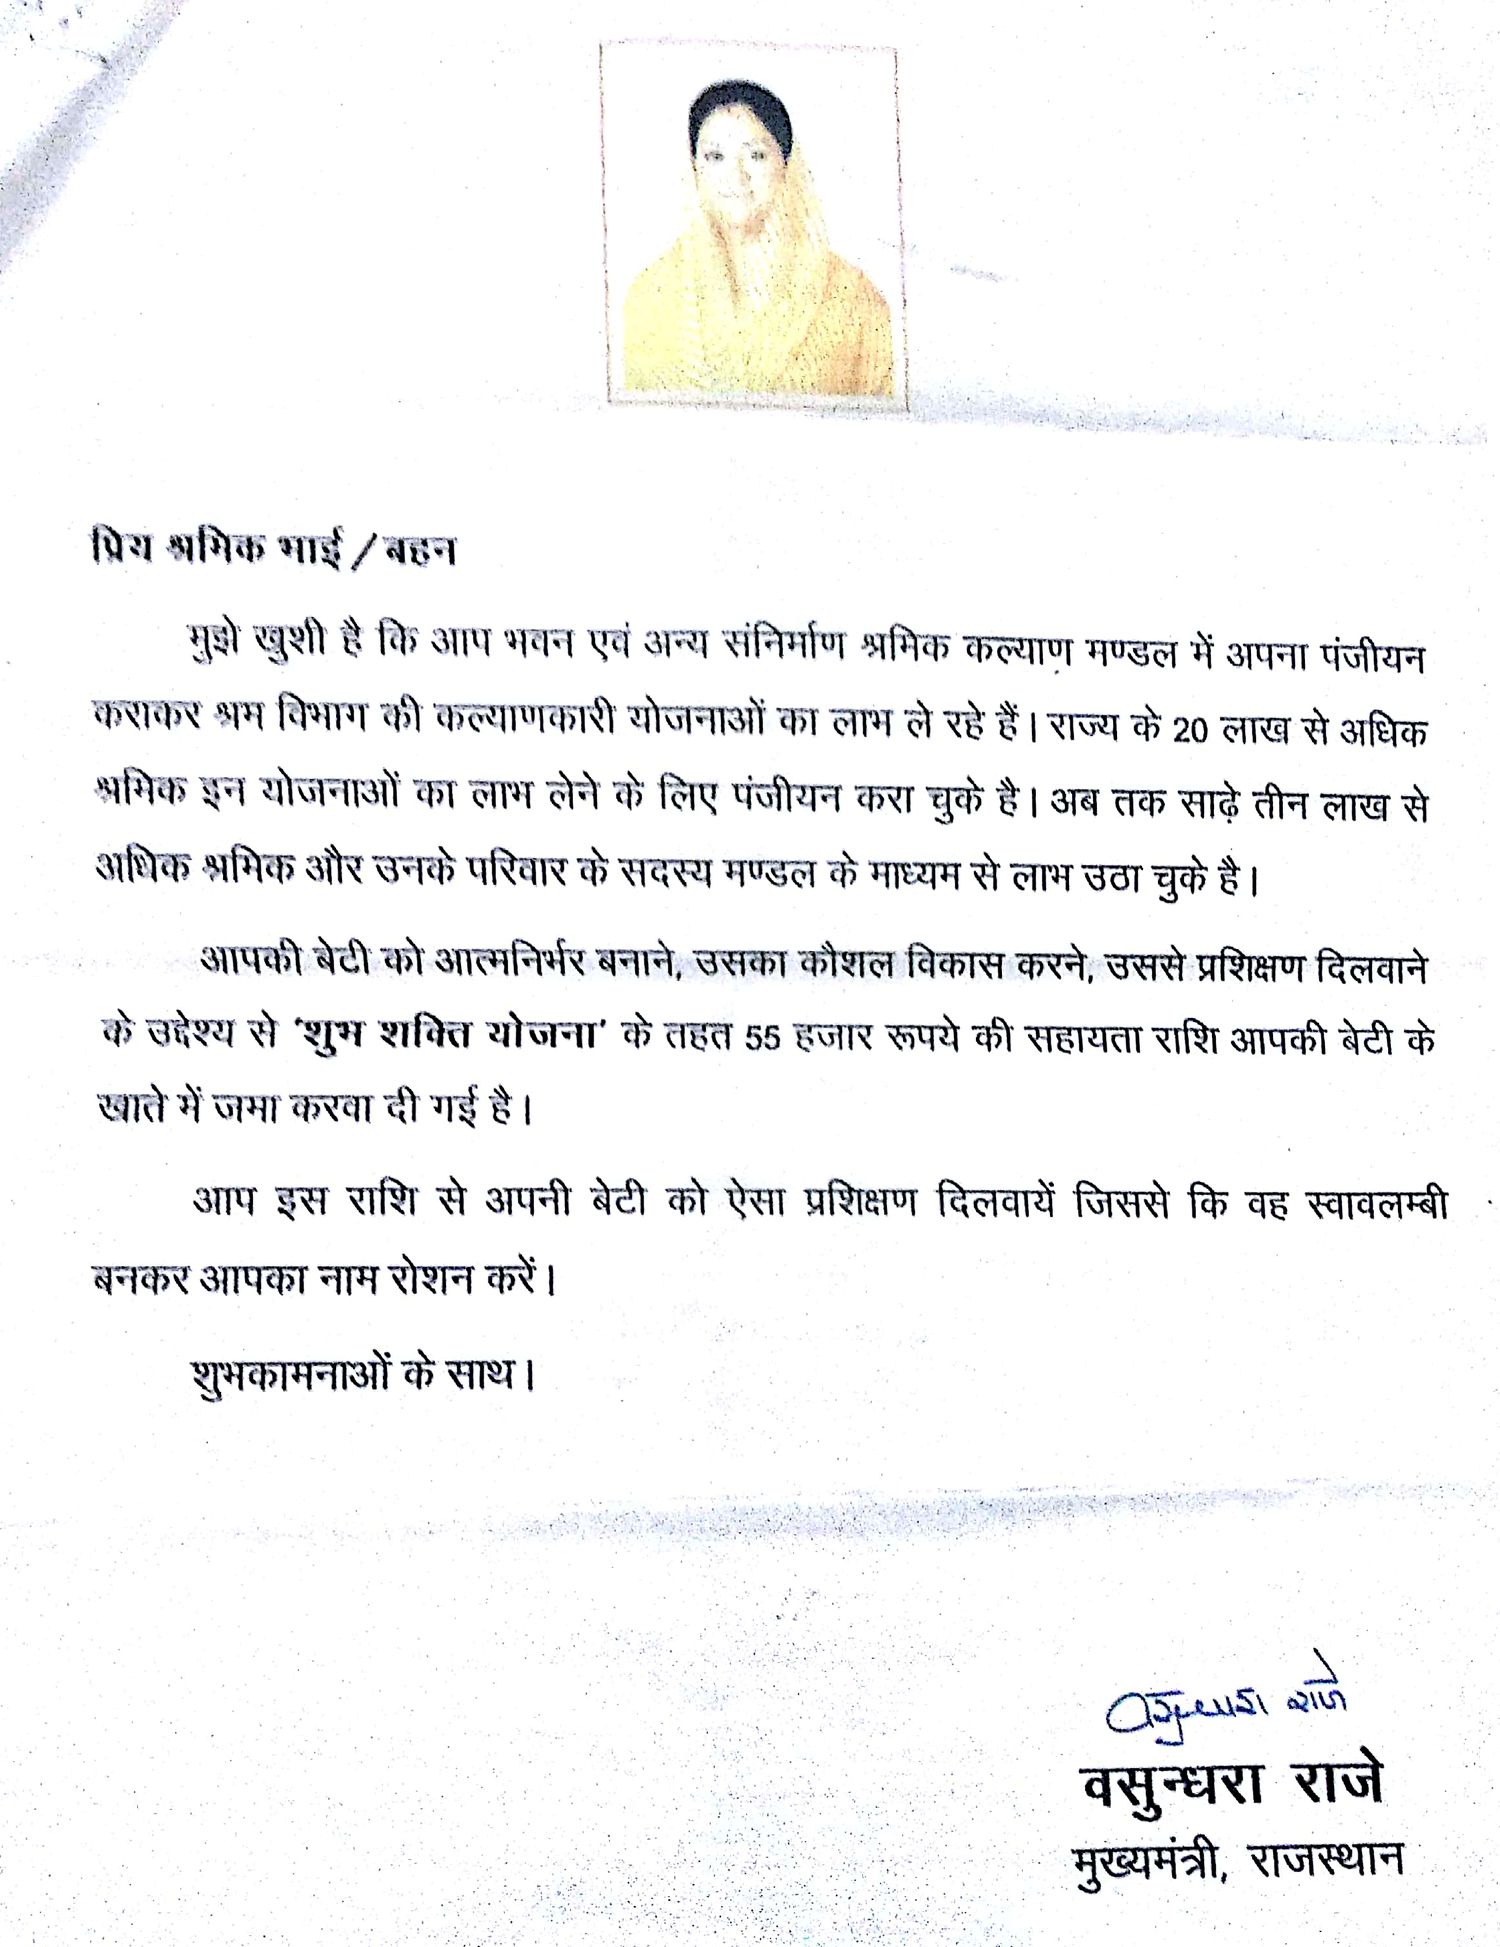 प्रिय श्रमिक भाई / बहन
मुझे खुशी है कि आप भवन एवं अन्य संनिर्माण श्रमिक कल्याण मण्डल में अपना पंजीयन
कराकर श्रम विभाग की कल्याणकारी योजनाओं का लाभ ले रहे हैं। राज्य के 20 लाख से अधिक
श्रमिक इन योजनाओं का लाभ लेने के लिए पंजीयन करा चुके है। अब तक साढ़े तीन लाख से
अधिक श्रमिक और उनके परिवार के सदस्य मण्डल के माध्यम से लाभ उठा चुके है।
आपकी बेटी को आत्मनिर्भर बनाने, उसका कौशल विकास करने, उससे प्रशिक्षण दिलवाने
के उद्देश्य से 'शुभ शक्ति योजना' के तहत 55 हजार रूपये की सहायता राशि आपकी बेटी के
खाते में जमा करवा दी गई है।
आप इस राशि से अपनी बेटी को ऐसा प्रशिक्षण दिलवायें जिससे कि वह स्वावलम्बी
बनकर आपका नाम रोशन करें।
शुभकामनाओं के साथ।
वसुन्धरा राजे
वसुन्धरा राजे
मुख्यमंत्री, राजस्थान